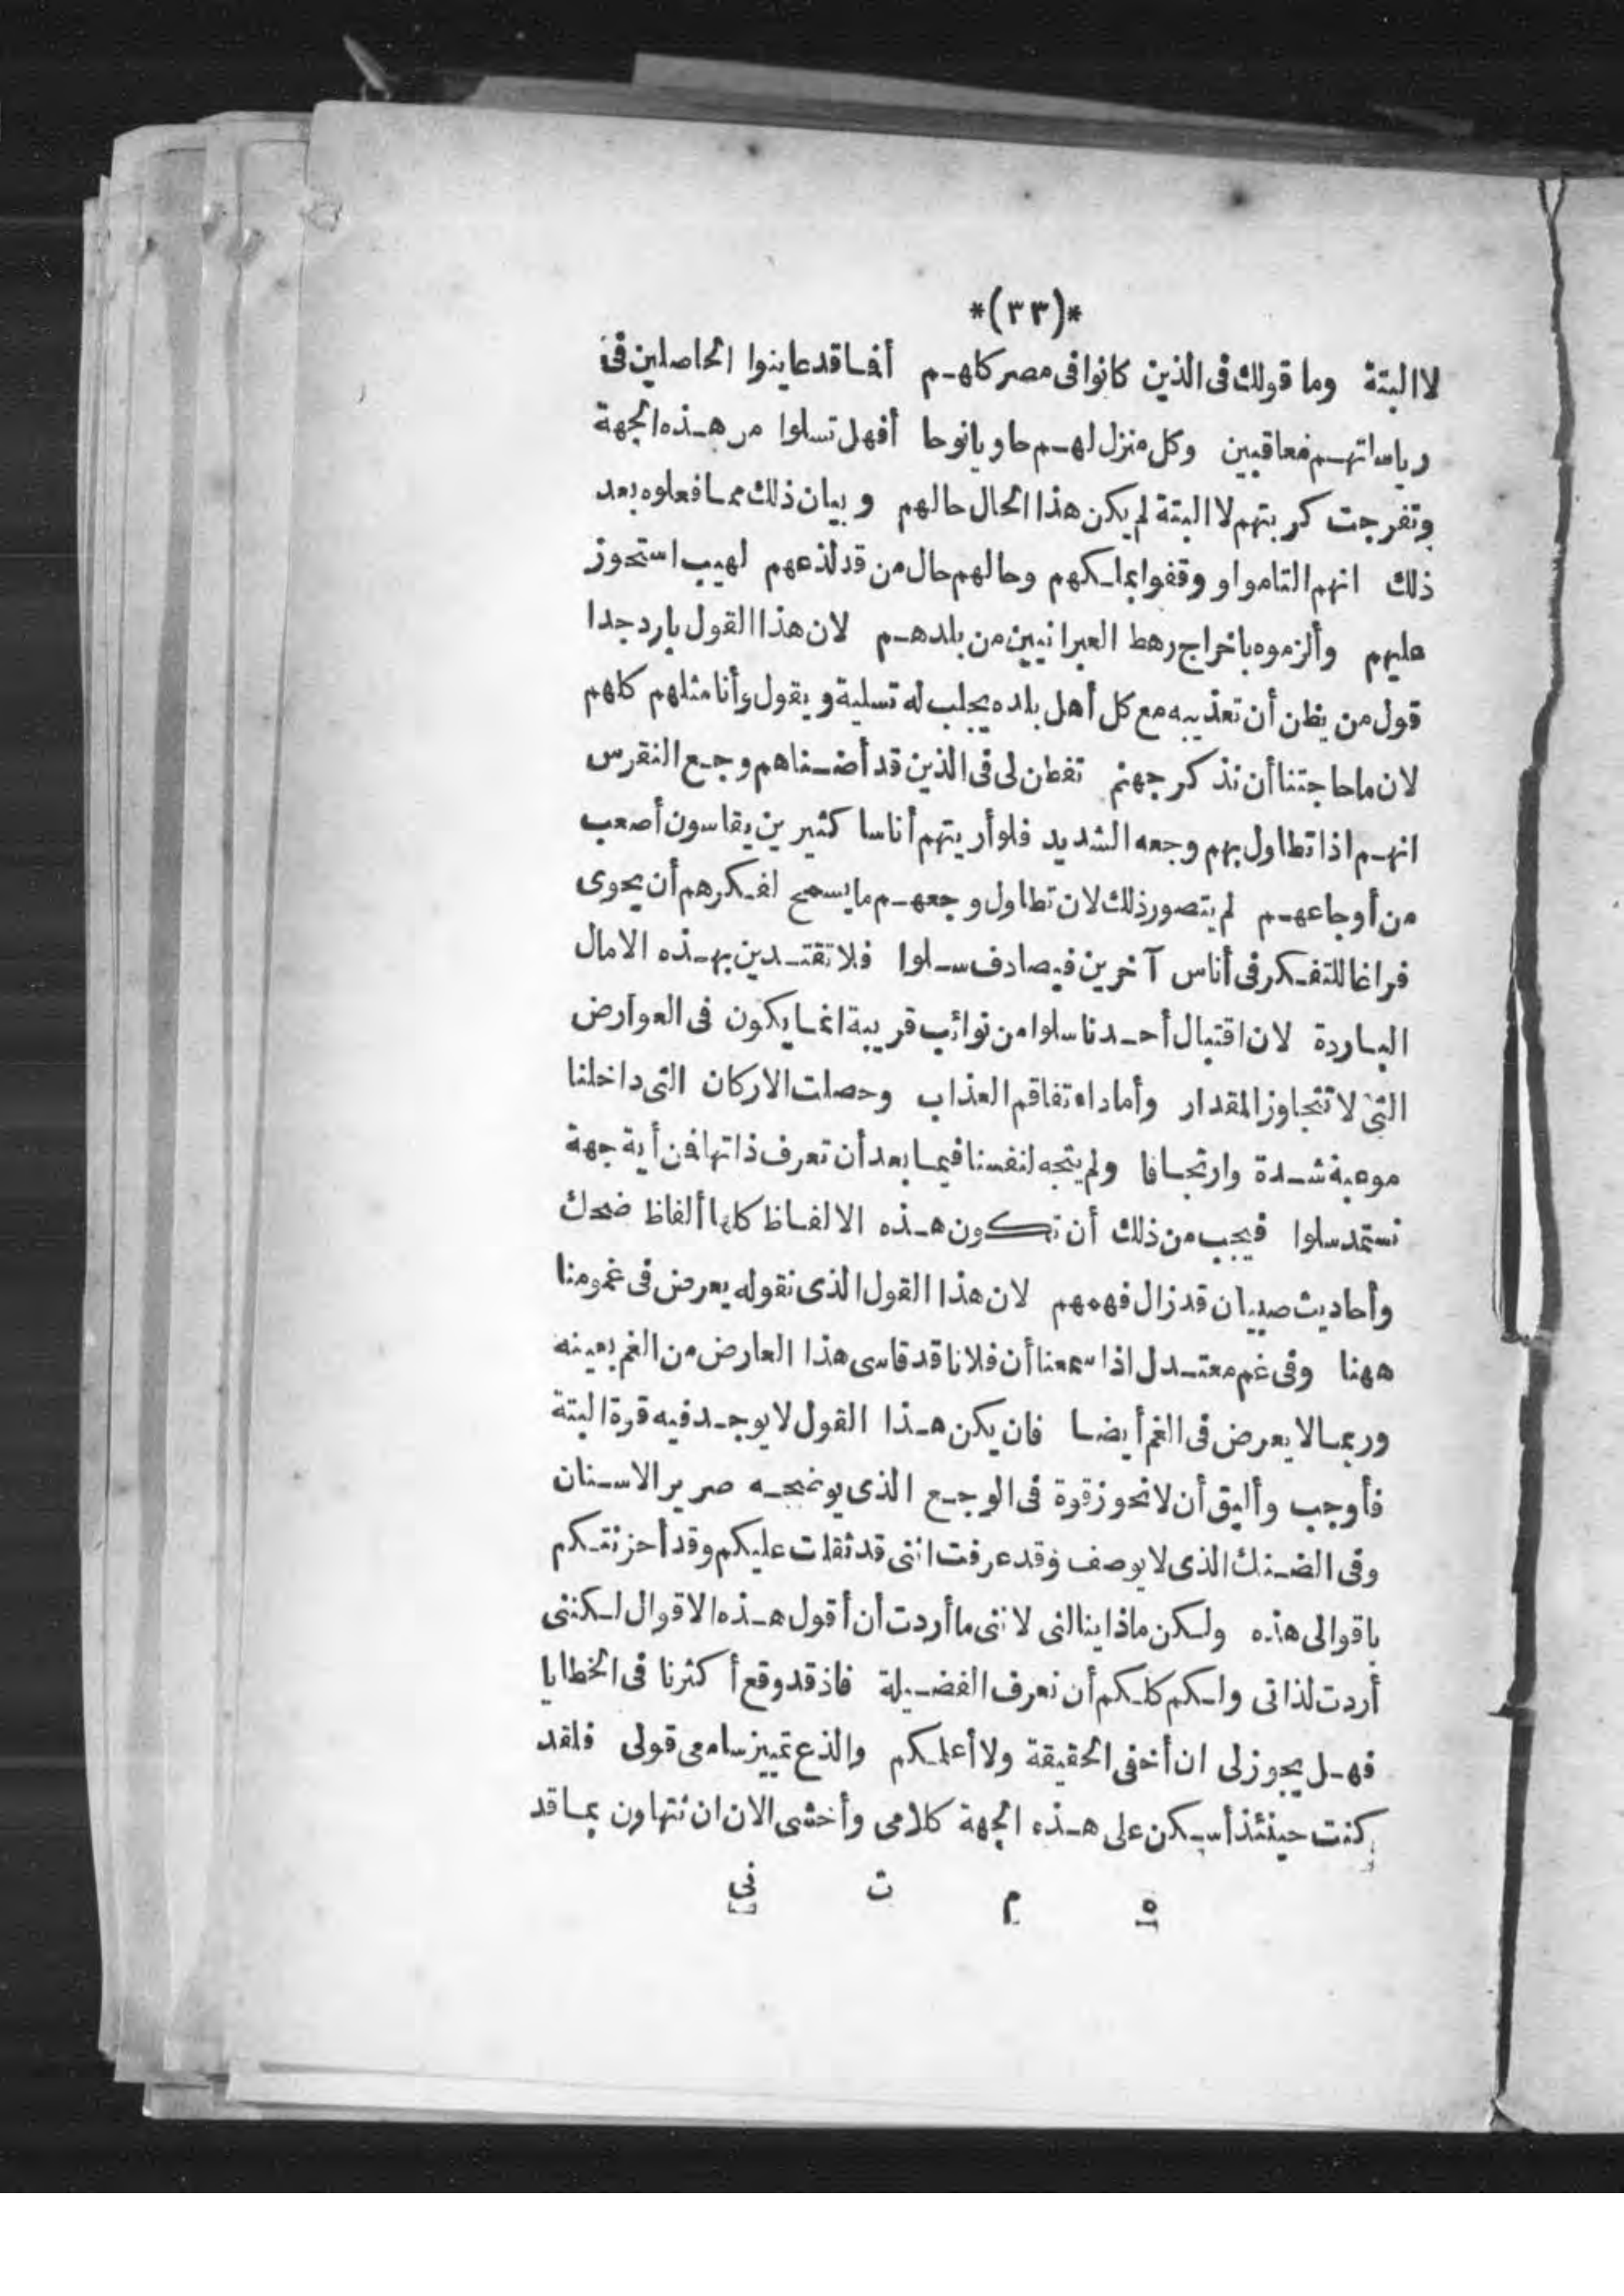 *(٣٣)*
لا البتة وما قولك فى الذين كانوا فى مصر كلهم أفما قد عاينوا الحاصلين فى
رياساتهم معاقبين وكل منزل لهم حاويا نوحا أفهل تسلوا من هذه الجهة
وتفرجت كربتهم لا البتة لم يكن هذا الحال حالهم وبيان ذلك مما فعلوه بعد
ذلك انهم التاموا ووقفوا بملكهم وحالهم حال من قد لذعهم لهيب استحوز
عليهم وألزموه باخراج رهط العبرانيين من بلدهم لان هذا القول بارد جدا
قول من يظن أن تعذيبه مع كل أهل بلده يجلب له تسلية ويقول وأنا مثلهم كلهم
لان ما حاجتنا أن نذكر جهنم تفطن لى فى الذين قد أضناهم وجع النقرس
انهم اذا تطاول بهم وجعه الشديد فلو أريتهم أناسا كثيرين يقاسون أصعب
من أوجاعهم لم يتصور ذلك لان تطاول وجعهم ما يسمح لفكرهم أن يحوى
فراغا للتفكر فى أناس آخرين فيصادف سلوا فلا تقتدين بهذه الامال
الباردة لان اقتبال أحدنا سلوا من نوائب قريبة انما يكون فى العوارض
التى لا تتجاوز المقدار وأما داء تفاقم العذاب وحصلت الاركان التى داخلنا
موعبة شدة وارتجافا ولم يتجه لنفسنا فيما بعد أن تعرف ذاتها فمن أية جهة
نستمد سلوا فيجب من ذلك أن تكون هذه الالفاظ كلها ألفاظ ضحك
وأحاديث صبيان قد زال فهمهم لان هذا القول الذى نقوله يعرض فى غمومنا
ههنا وفى غم معتدل اذا سمعنا أن فلانا قد قاسى هذا العارض من الغم بعينه
وربما لا يعرض فى الغم أيضا فان يكن هذا القول لا يوجد فيه قوة البتة
فأوجب وأليق أن لا نحوز قوة فى الوجع الذى يوضحه صرير الاسنان
وفى الضنك الذى لا يوصف وقد عرفت اننى قد ثقلت عليكم وقد أحزنتكم
باقوالى هذه ولكن ماذا ينالنى لاننى ما أردت أن أقول هذه الاقوال لكننى
أردت لذاتى ولكم كلكم أن نعرف الفضيلة فاذ قد وقع أكثرنا فى الخطايا
فهل يجوز لى ان أخفى الحقيقة ولا أعلمكم والذع تمييز سامعى قولى فلقد
كنت حينئذ أسكن على هذه الجهة كلامى وأخشى الان ان نتهاون بما قد
٥ م ت نى